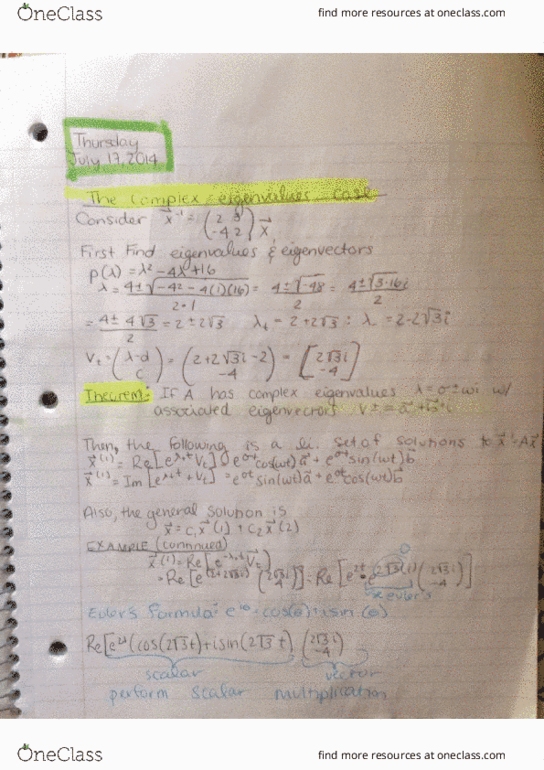 OneClass
find more resources at oneclass.com
Thursday
July 17, 2014
The complex eigenvalues case
Consider x⃗' = (2 3
-4 2) x⃗
First Find eigenvalues & eigenvectors
p(λ) = λ² - 4λ + 16
λ = 4 ± √-4² - 4(1)(16) = 4 ± √-48 = 4 ± √3·16 i
2·1 2 2
= 4 ± 4√3 = 2 ± 2√3 λ₊ = 2 + 2√3 i λ₋ = 2 - 2√3 i
2
V₊ = (λ-d
c) = (2+2√3i - 2
-4) = [2√3i
-4]
Theorem: IF A has complex eigenvalues λ = σ ± ωi w/
associated eigenvectors V± = a⃗ ± b⃗ i
Then, the following is a l.i. set of solutions to x⃗' = Ax⃗
x⃗⁽¹⁾ = Re[e^λ₊t V₊] e^σt cos(ωt) a⃗ + e^σt sin(ωt) b⃗
x⃗⁽¹⁾ = Im[e^λ₊t V₊] = e^σt sin(ωt) a⃗ + e^σt cos(ωt) b⃗
Also, the general solution is
x⃗ = c₁x⃗(1) + c₂x⃗(2)
EXAMPLE (continued)
x⃗(1) = Re[e^λ₊t V₊]
= Re[e^(2+2√3i) (2√3i
-4)] = Re[e^2t · e^(2√3t)i (2√3i
-4)]
euler's
Euler's Formula: e^iθ = cos(θ) + isin(θ)
Re[e^2t (cos(2√3t) + isin(2√3t) (2√3i
-4)
scalar vector
perform scalar multiplication
OneClass
find more resources at oneclass.com